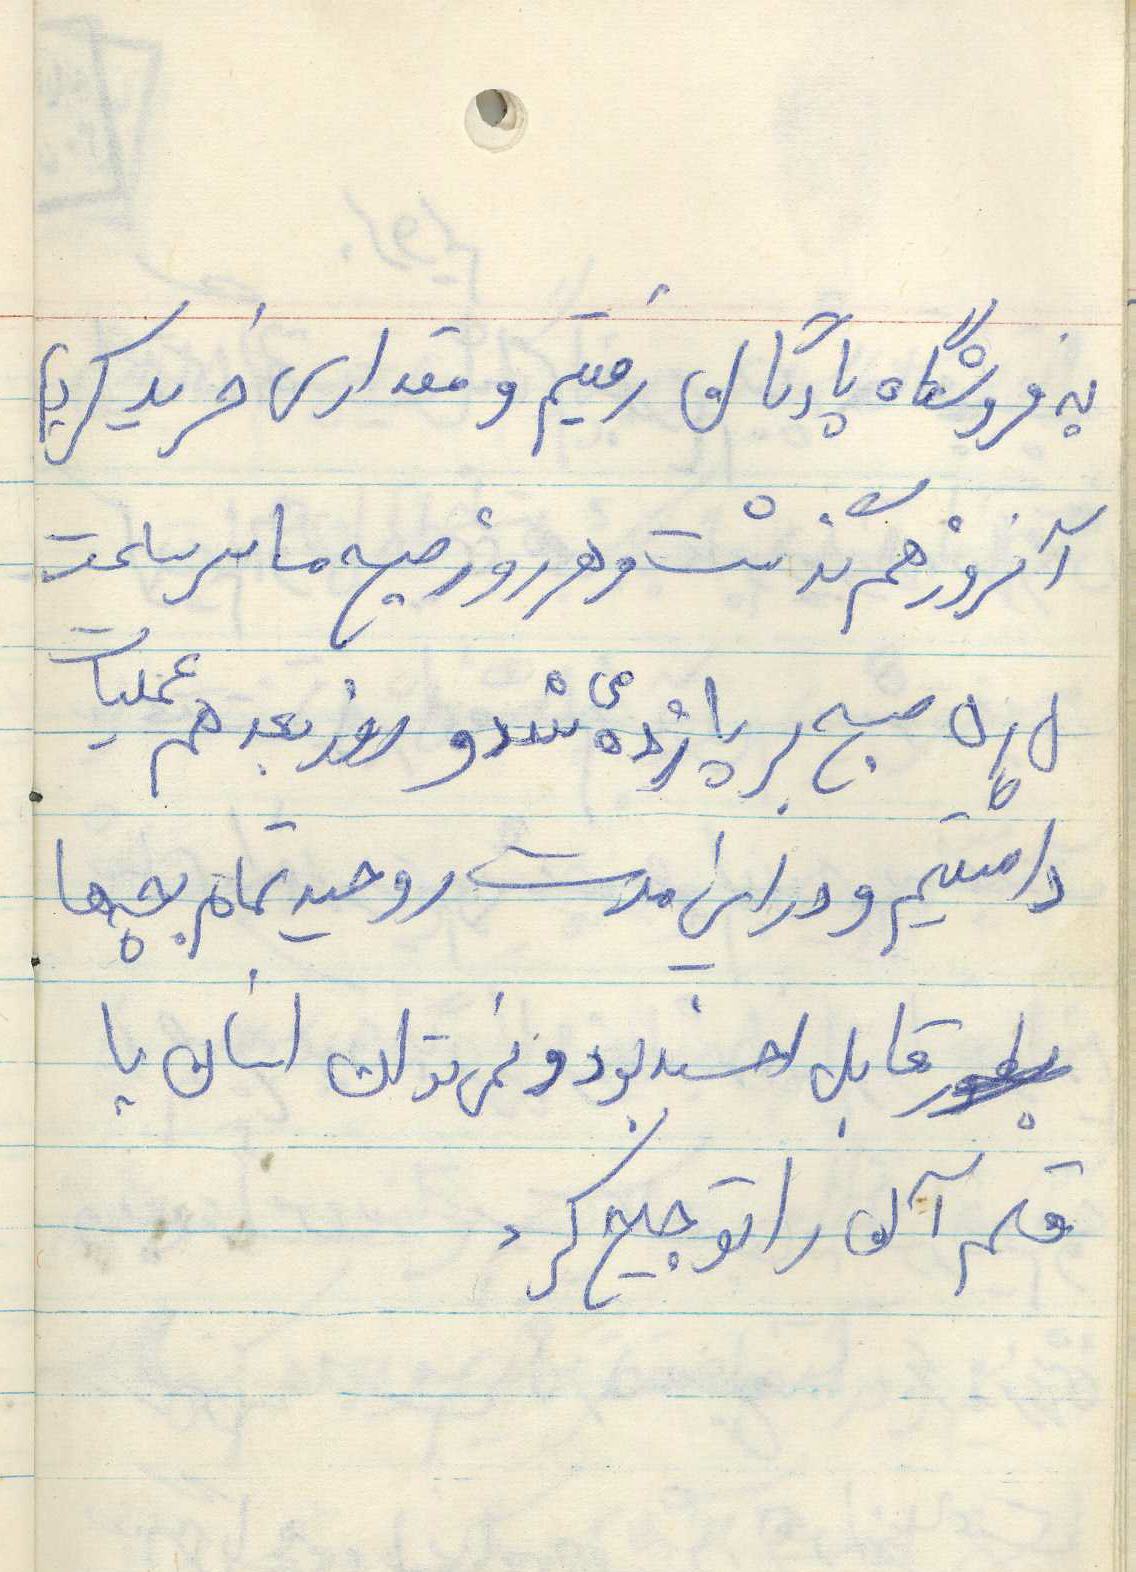 به فروشگاه پادگان رفتیم و مقداری خرید کردیم
آنروز هم گذشت و هر روز صبح ما سر ساعت
صبح بر پا زده می شد و روز بعد هم عملیات
داشتیم و در این مدت روحیه تمام بچه ها
قابل بود و نمی توان انسان با
قلم آن را توجیح کرد